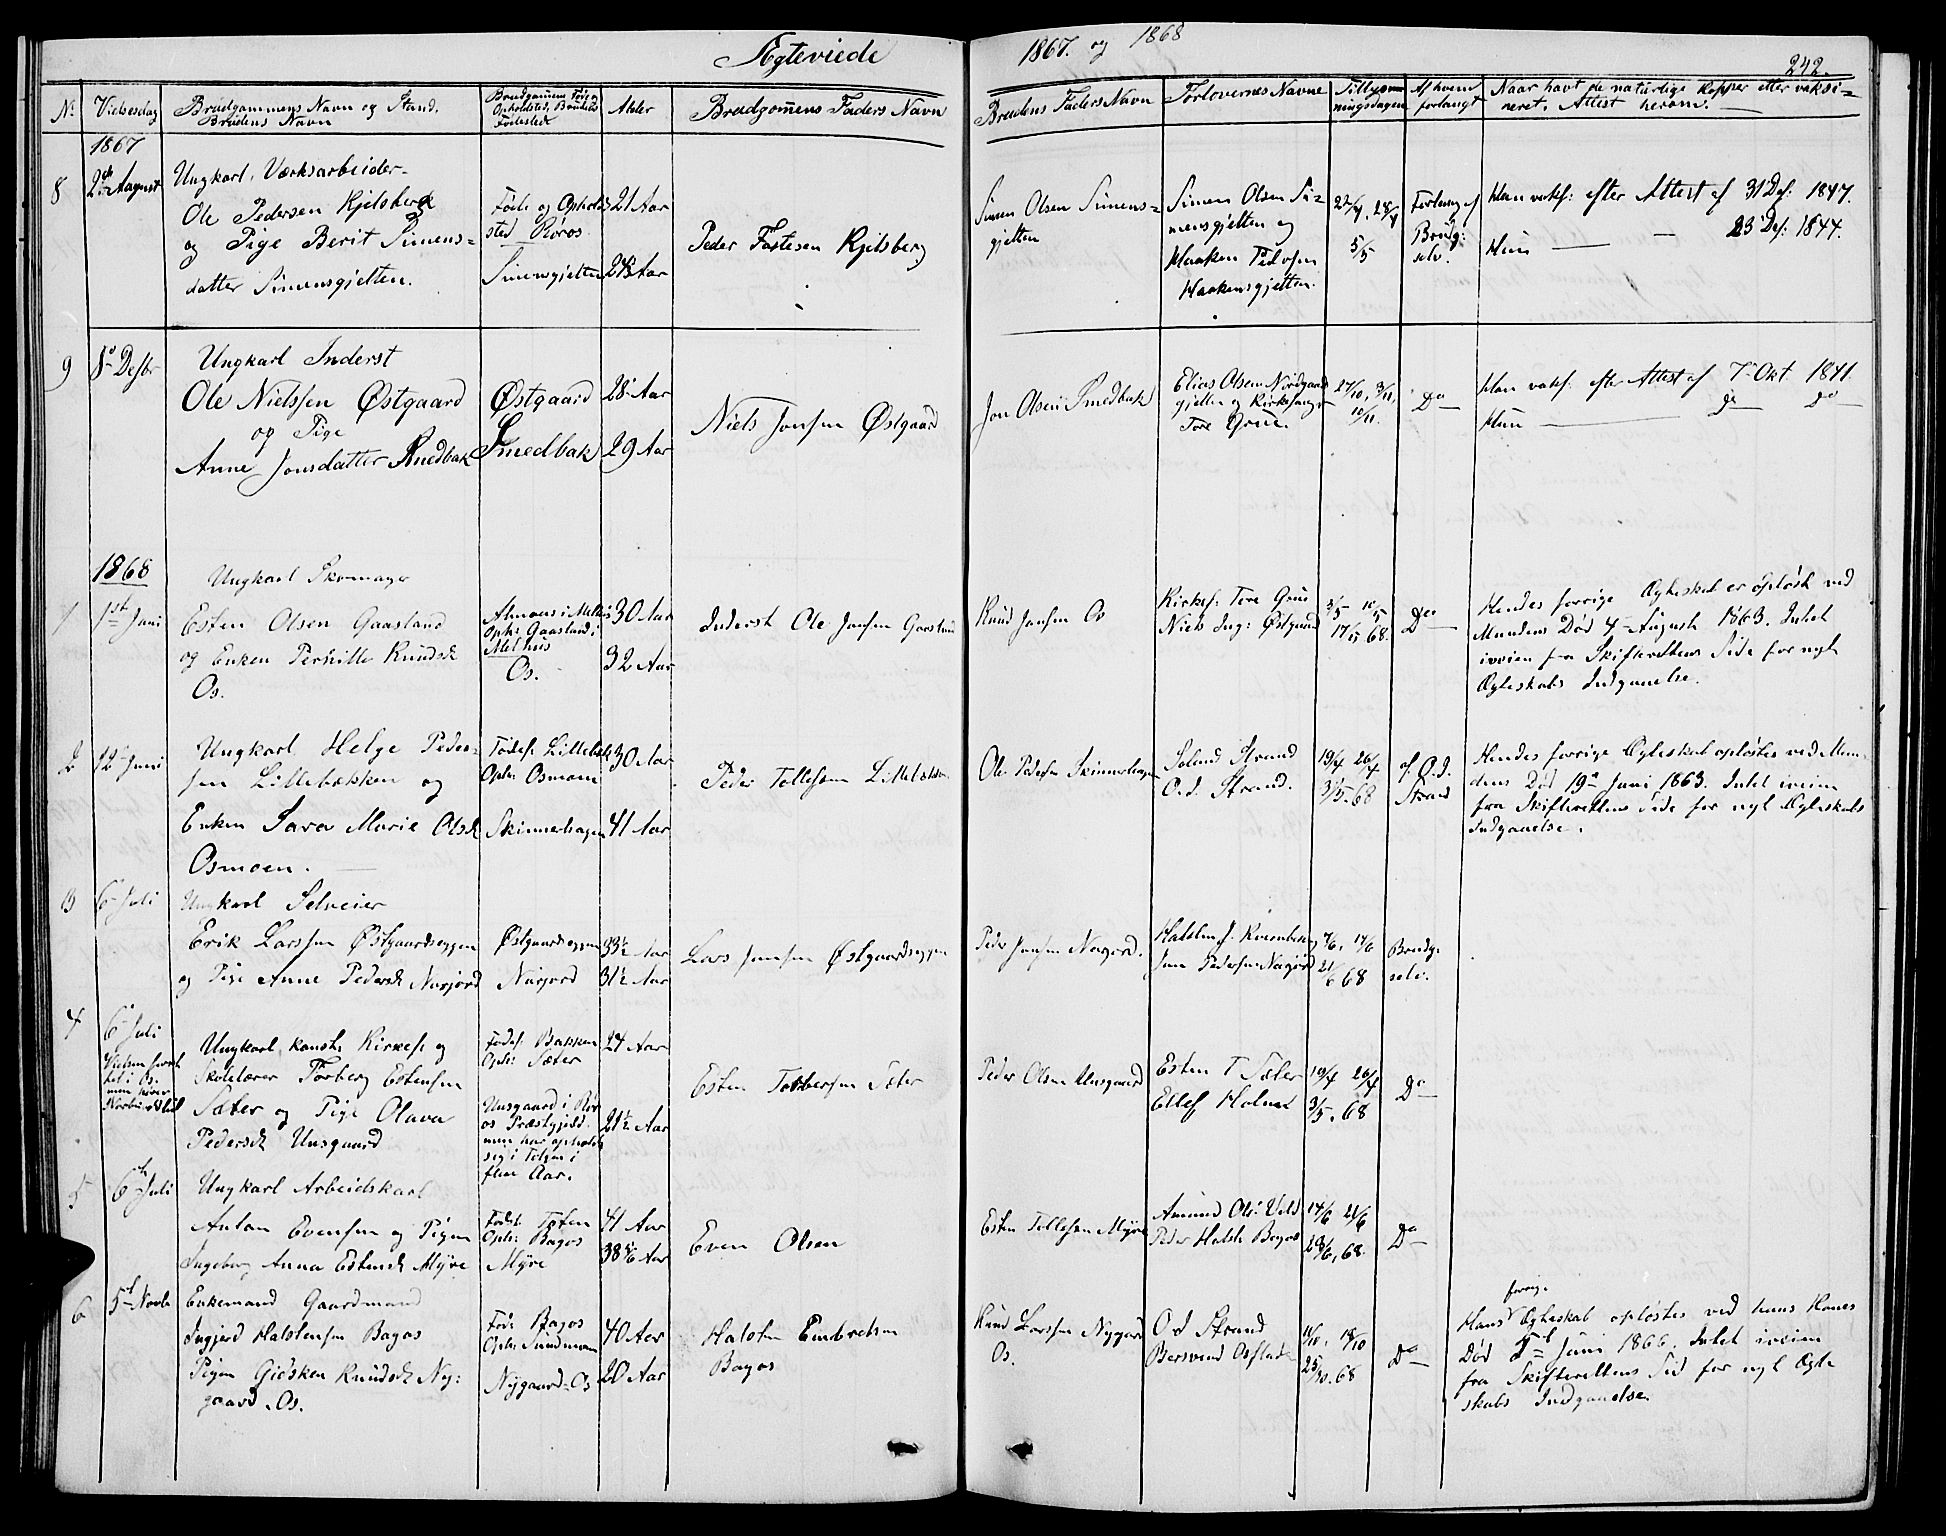 Ægteviede
1867. og 1868
242.
No. Vielsesdag
Brudgommens Navn og Stand.
Brudens Navn
Brudgommens Føde og
Opholdsted, Brudens
Fødested
Alder
Brudgommens Faders Navn
Brudens Faders Navn
Forlovernes Navne
Tillysningsdagen
Af hvem
forlangt
Naar havt de naturlige Kopper eller vaksi-
neret. Attest herom.
1867
8
2den August
Ungkarl, Værksarbeider
Ole Pedersen Kjelsberg
og Pige Berit Simens-
datter Simensgjelten.
Føde og Ophold-
sted Röros
Simensgjelten
21 Aar
24 Aar
Peder Fastesen Kjelsberg
Simen Olsen Simens-
gjelten
Simen Olsen Si-
mensgjelten og
Haaken Pedersen
Haakensgjelten.
22/4, 28/4
5/5
Forlang af
Brudg:
selv.
Han vaks: efter Attest af 31 Des: 1847.
Hun — — 23 Des: 1844.
9
8de Desbr
Ungkarl Inderst
Ole Nielssen Østgaard
og Pige
Anne Jonsdatter Smedbak
Østgaard
Smedbak
28 Aar
29 Aar
Niels Jonsen Østgaard
Jon Olsen Smedbak
Elias Olsen Nordgaards
gjelten og Kirkesanger
Tore Grue.
27/10, 3/11,
10/11.
Do
Han vaks: efter Attest af 7 Okt. 1841.
Hun — do do
1868
1
1st Juni
Ungkarl Skomager
Esten Olsen Gaasland
og Enken Pernille Knudsd
Os.
Opho: Gaasland i
Melhus
Os.
30 Aar
32 Aar
Inderst Ole Jonsen Gaasland
Knud Jonsen Os
Kirkes: Tore Grue
Niels Ing: Østgaard
3/5 10/5
17/5 68.
Do
Hendes forrige Ægteskab er opløst ved
Mandens Død 4 August 1863. Intet
iveien fra Skifterettens Side for nyt
Ægteskabs Indgaaelse.
2
12 Juni
Ungkarl Helge Peder-
sen Lillebækken og
Enken Sara Marie Olsd
Osmoen.
Fødes: Lillebæk
Opho: Osmoen
Skinnerhagen
30 Aar
41 Aar
Peder Tollefsen Lillebækken
Ole Pedersen Skinnerhagen
Strand
O. J. Strand.
19/4 26/4
3/5. 68
af O. J.
Strand
Hendes forrige Ægteskab opløstes ved Man-
dens Død 19de Juni 1863. Intet iveien
fra Skifterettens Side for nyt Ægteskabs
Indgaaelse.
3
6 Juli
Ungkarl Selveier
Erik Larssen Østgaardseggen
og Pige Anne Pedersd Narjord
Østgaardseggen
Narjord
33½ Aar
31½ Aar
Lars Jonsen Østgaardseggen
Peder Jonsen Narjord.
Halsten J. Kvernberg
Jon Pedersen Narjord
7/6, 14/6
21/6 68
Brudg:
selv.
4
6 Juli
Ungkarl, konst. Kirkes. og
Skolelærer Torberg Estensen
Sæter og Pige Olava
Pedersd Unsgaard
Fødes: Bakken
Opho: Sæter
Unsgaard i Rör-
os Præstgjeld.
men har opholdt
sig i Tolgen i
flere Aar.
24 Aar
21½ Aar
Esten Torbersen Sæter
Peder Olsen Unsgaard
Esten T Sæter
Ellef Holm
19/4 26/4
3/5. 68
Do
5
6 Juli
Ungkarl Arbeidskarl
Anton Evensen og Pigen
Ingeborg Anna Estensd Myre
Føds: Toten
Opho: Bagos
Myre
41 Aar
38 5/6 Aar
Even Olsen
Esten Tollefsen Myre
Amund Ols: Veld
Peder Halst: Bagos
14/6 21/6
28/6, 68.
Do
6
5 Novbr
Enkemand Gaardmand
Ingjerd Halstensen Bagos
Pigen Gidsken Knudsd Ny-
gaard. Os.
Føds: Bagos
Opho: Sundmoen
Nygaard-Os
40 Aar
20 Aar
Halsten Embretsen
Bagos
Knud Larssen Nygaard
Os.
O J Strand
Bersvend Osflaten
11/10, 18/10
25/10. 68
Do
forrige
Hans Ægteskab opløstes ved hans Kones
Død Juni 1866. Intet iveien
fra Skifterettens Sid for nyt Ægte
skabs Indgaaelse